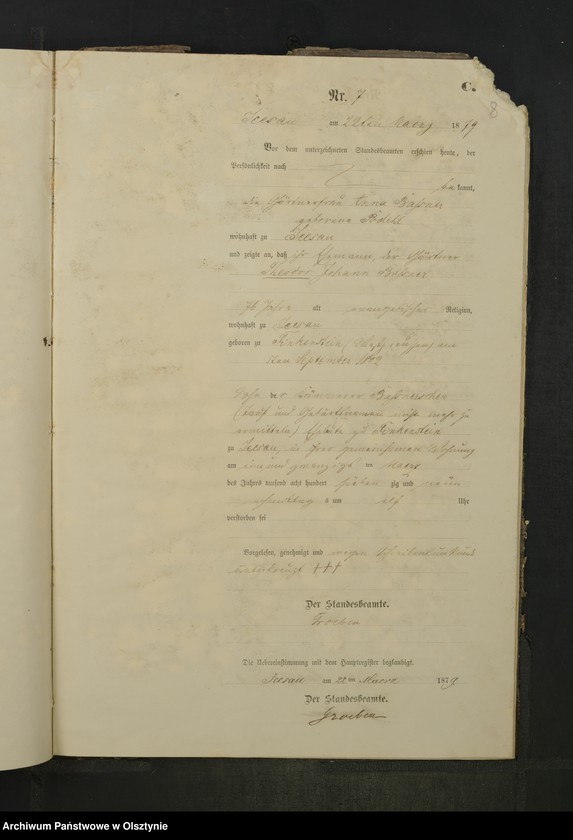 C.
8
Nr. 7
Seesau am 22ten Maerz 1879
Vor dem unterzeichneten Standesbeamten erschien heute, der
Persönlichkeit nach
be kannt,
die Gärtnerfrau Anna
geborene
wohnhaft zu Seesau
und zeigte an, daß ihr Ehemann, der Gärtner
Theodor Johann
76 Jahre alt evangelischer Religion,
wohnhaft zu Seesau
geboren zu Finkenstein,
September
Sohn der Kämmerer
(Tauf und Geburtsnamen nicht mehr zu
ermitteln) Eheleute zu Finkenstein
zu Seesau, in ihrer gemeinsamen Wohnung
am ein und zwanzigsten Maerz
des Jahres tausend acht hundert sieben zig und neun
nachmittags um elf Uhr
verstorben sei
Vorgelesen, genehmigt und wegen Schreibensunkunde
unterkreuzt +++
Der Standesbeamte.
Groeben
Die Uebereinstimmung mit dem Hauptregister beglaubigt.
Seesau am 22ten Maerz 1879
Der Standesbeamte.
Groeben
Archiwum Państwowe w Olsztynie